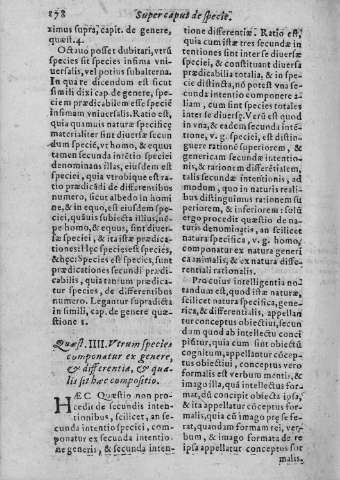 178 Super caput de specie.
ximus supra, capit. de genere,
quæst. 4.
Octauo posset dubitari, vtrũ
species sit species infima vni-
uersalis, vel potius subalterna.
In qua re dicendum est sicut
similis dixi cap. de genere, spe-
ciem prædicabilem esse speciẽ
infimam vniuersalis. Ratio est,
quia quamuis naturæ specificę
materialiter sint diuersæ secun
dum speciẽ, vt homo, & equus
tamen secunda intẽtio speciei
denominans illas, eiusdem est
speciei, quia vtrobique est ra-
tio prædicãdi de differentibus
numero, sicut albedo in homi
ne, & in equo, est eiusdem spe-
ciei, quãuis subiecta illius, nẽ-
pe homo, & equus, sint diuer-
sæ speciei, & ita istæ prædica-
tiones: Hęc species est species,
& hęc: Species est species, sunt
prædicationes secundi prædi-
cabilis, quia tantum prædica-
tur species, de differentibus
numero. Legantur supradicta
in simili, cap. de genere quæ-
stione 1.
Quæst. IIII. Vtrum species
componatur ex genere,
& differentia, & qua-
lis sit hæc compositio.
HÆC Quæstio non pro-
cedit de secundis inten-
tionibus, scilicet, an se-
cunda intentio speciei, com-
ponatur ex secunda intentio-
ne generis, & secunda inten-
tione differentiæ. Ratio est,
quia cum istæ tres secundæ in
tentiones sint inter se diuersæ
speciei, & constituant diuersa
prædicabilia totalia, & in spe-
cie distincta, nõ potest vna se-
cunda intentio componere a-
liam, cum sint species totales
inter se diuersę. Verũ est quod
in vna, & eadem secunda intẽ-
tione, v. g. speciei, est distin-
guere rationẽ superiorem, &
genericam secundæ intentio-
nis, & rationem differẽtialem,
talis secundæ intentionis, ad
modum, quo in naturis reali-
bus distinguimus rationem su
periorem, & inferiorem: solũ
ergo procedit quæstio de na-
turis denominatis, an scilicet
natura specifica, v. g. homo,
componatur ex natura generi
ca animalis, & ex natura diffe-
rentiali rationalis.
Pro cuius intelligentia no-
tandum est, quod istæ naturæ,
scilicet natura specifica, gene-
rica, & differentialis, appellan
tur conceptus obiectiui, secun
dum quod ab intellectu conci
piũtur, quia cum sint obiectũ
cognitum, appellantur cõcep-
tus obiectiui, conceptus vero
formalis est verbum mentis, &
imago illa, quã intellectus for-
mat, dũ concipit obiecta ipsa,
& ita appellantur cõceptus for-
malis, quia cũ imago prę se fe-
rat, quandam formam rei, ver-
bum, & imago formata de re
ipsa appellatur conceptus for
malis.